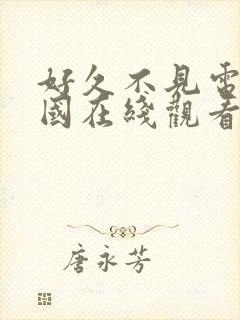 好久不見雷
國在綫觀看
唐永芳